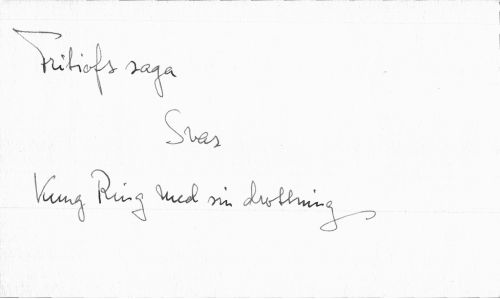 Fritiofs saga
Svas
Kung Ring med sin drottning